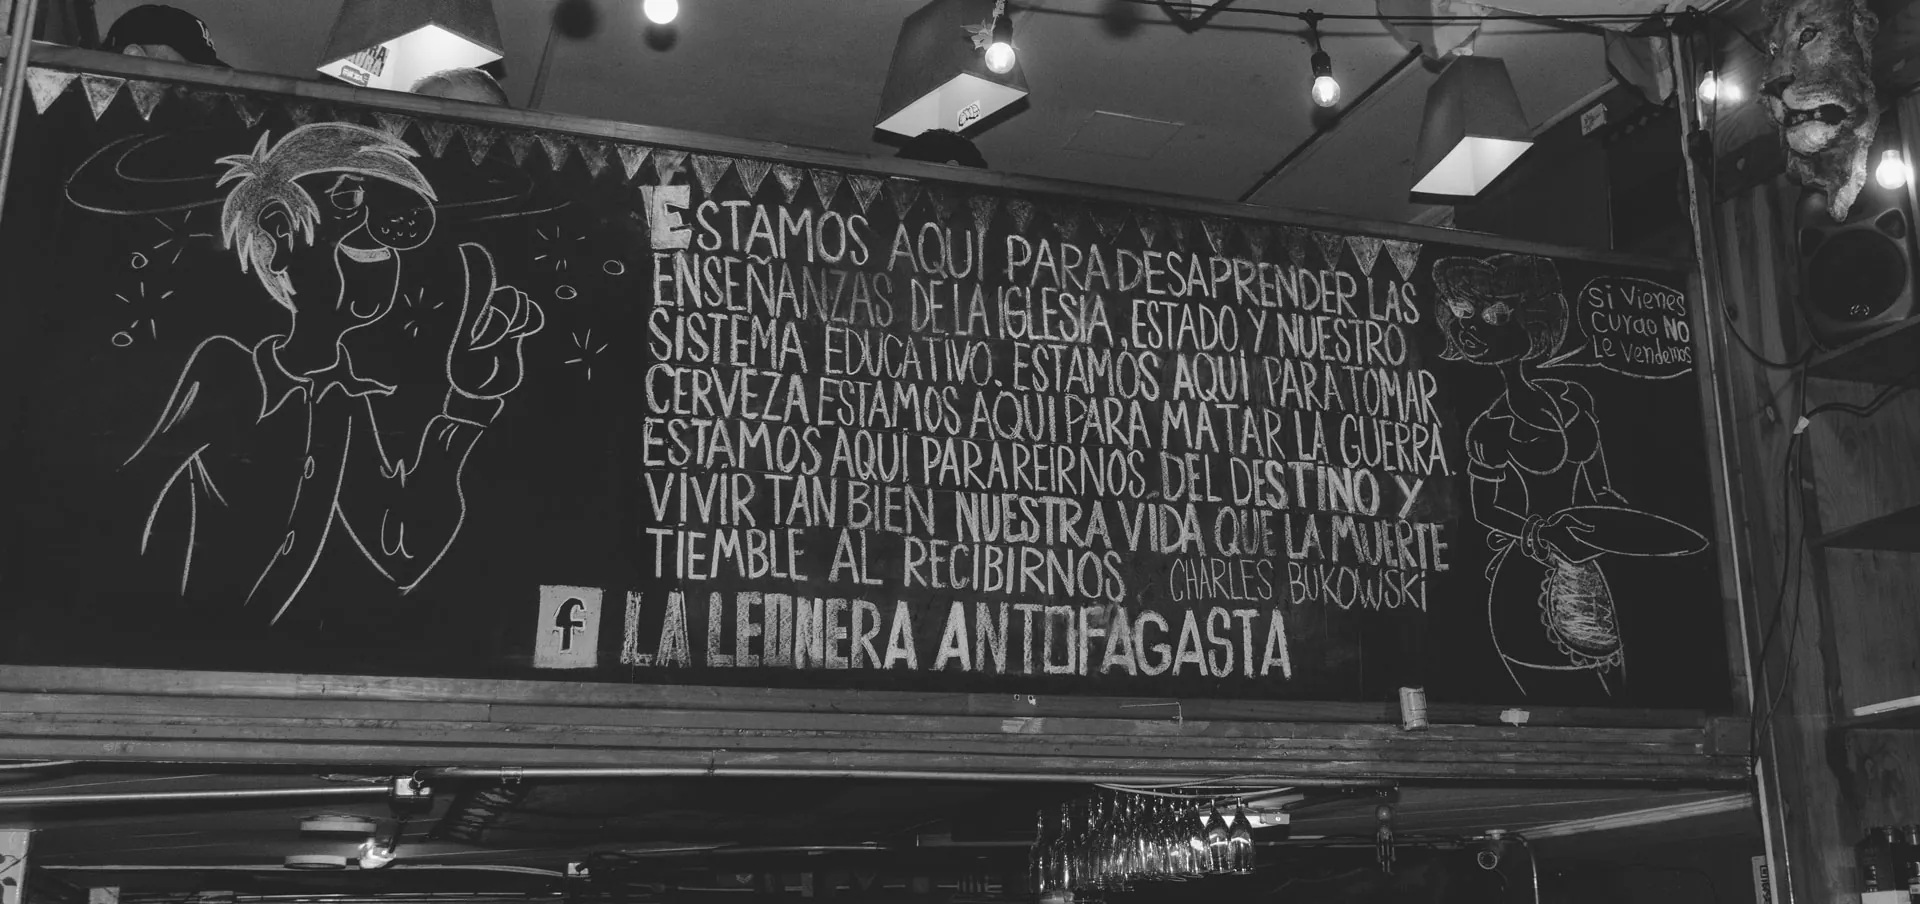 ESTAMOS AQUÍ PARA DESAPRENDER LAS
ENSEÑANZAS DE LA IGLESIA, ESTADO Y NUESTRO
SISTEMA EDUCATIVO. ESTAMOS AQUÍ PARA TOMAR
CERVEZA ESTAMOS AQUÍ PARA MATAR LA GUERRA.
ESTAMOS AQUÍ PARA REIRNOS DEL DESTINO Y
VIVIR TAN BIEN NUESTRA VIDA QUE LA MUERTE
TIEMBLE AL RECIBIRNOS CHARLES BUKOWSKI
f LA LEONERA ANTOFAGASTA
Si Vienes
Curao NO
Le Vendemos